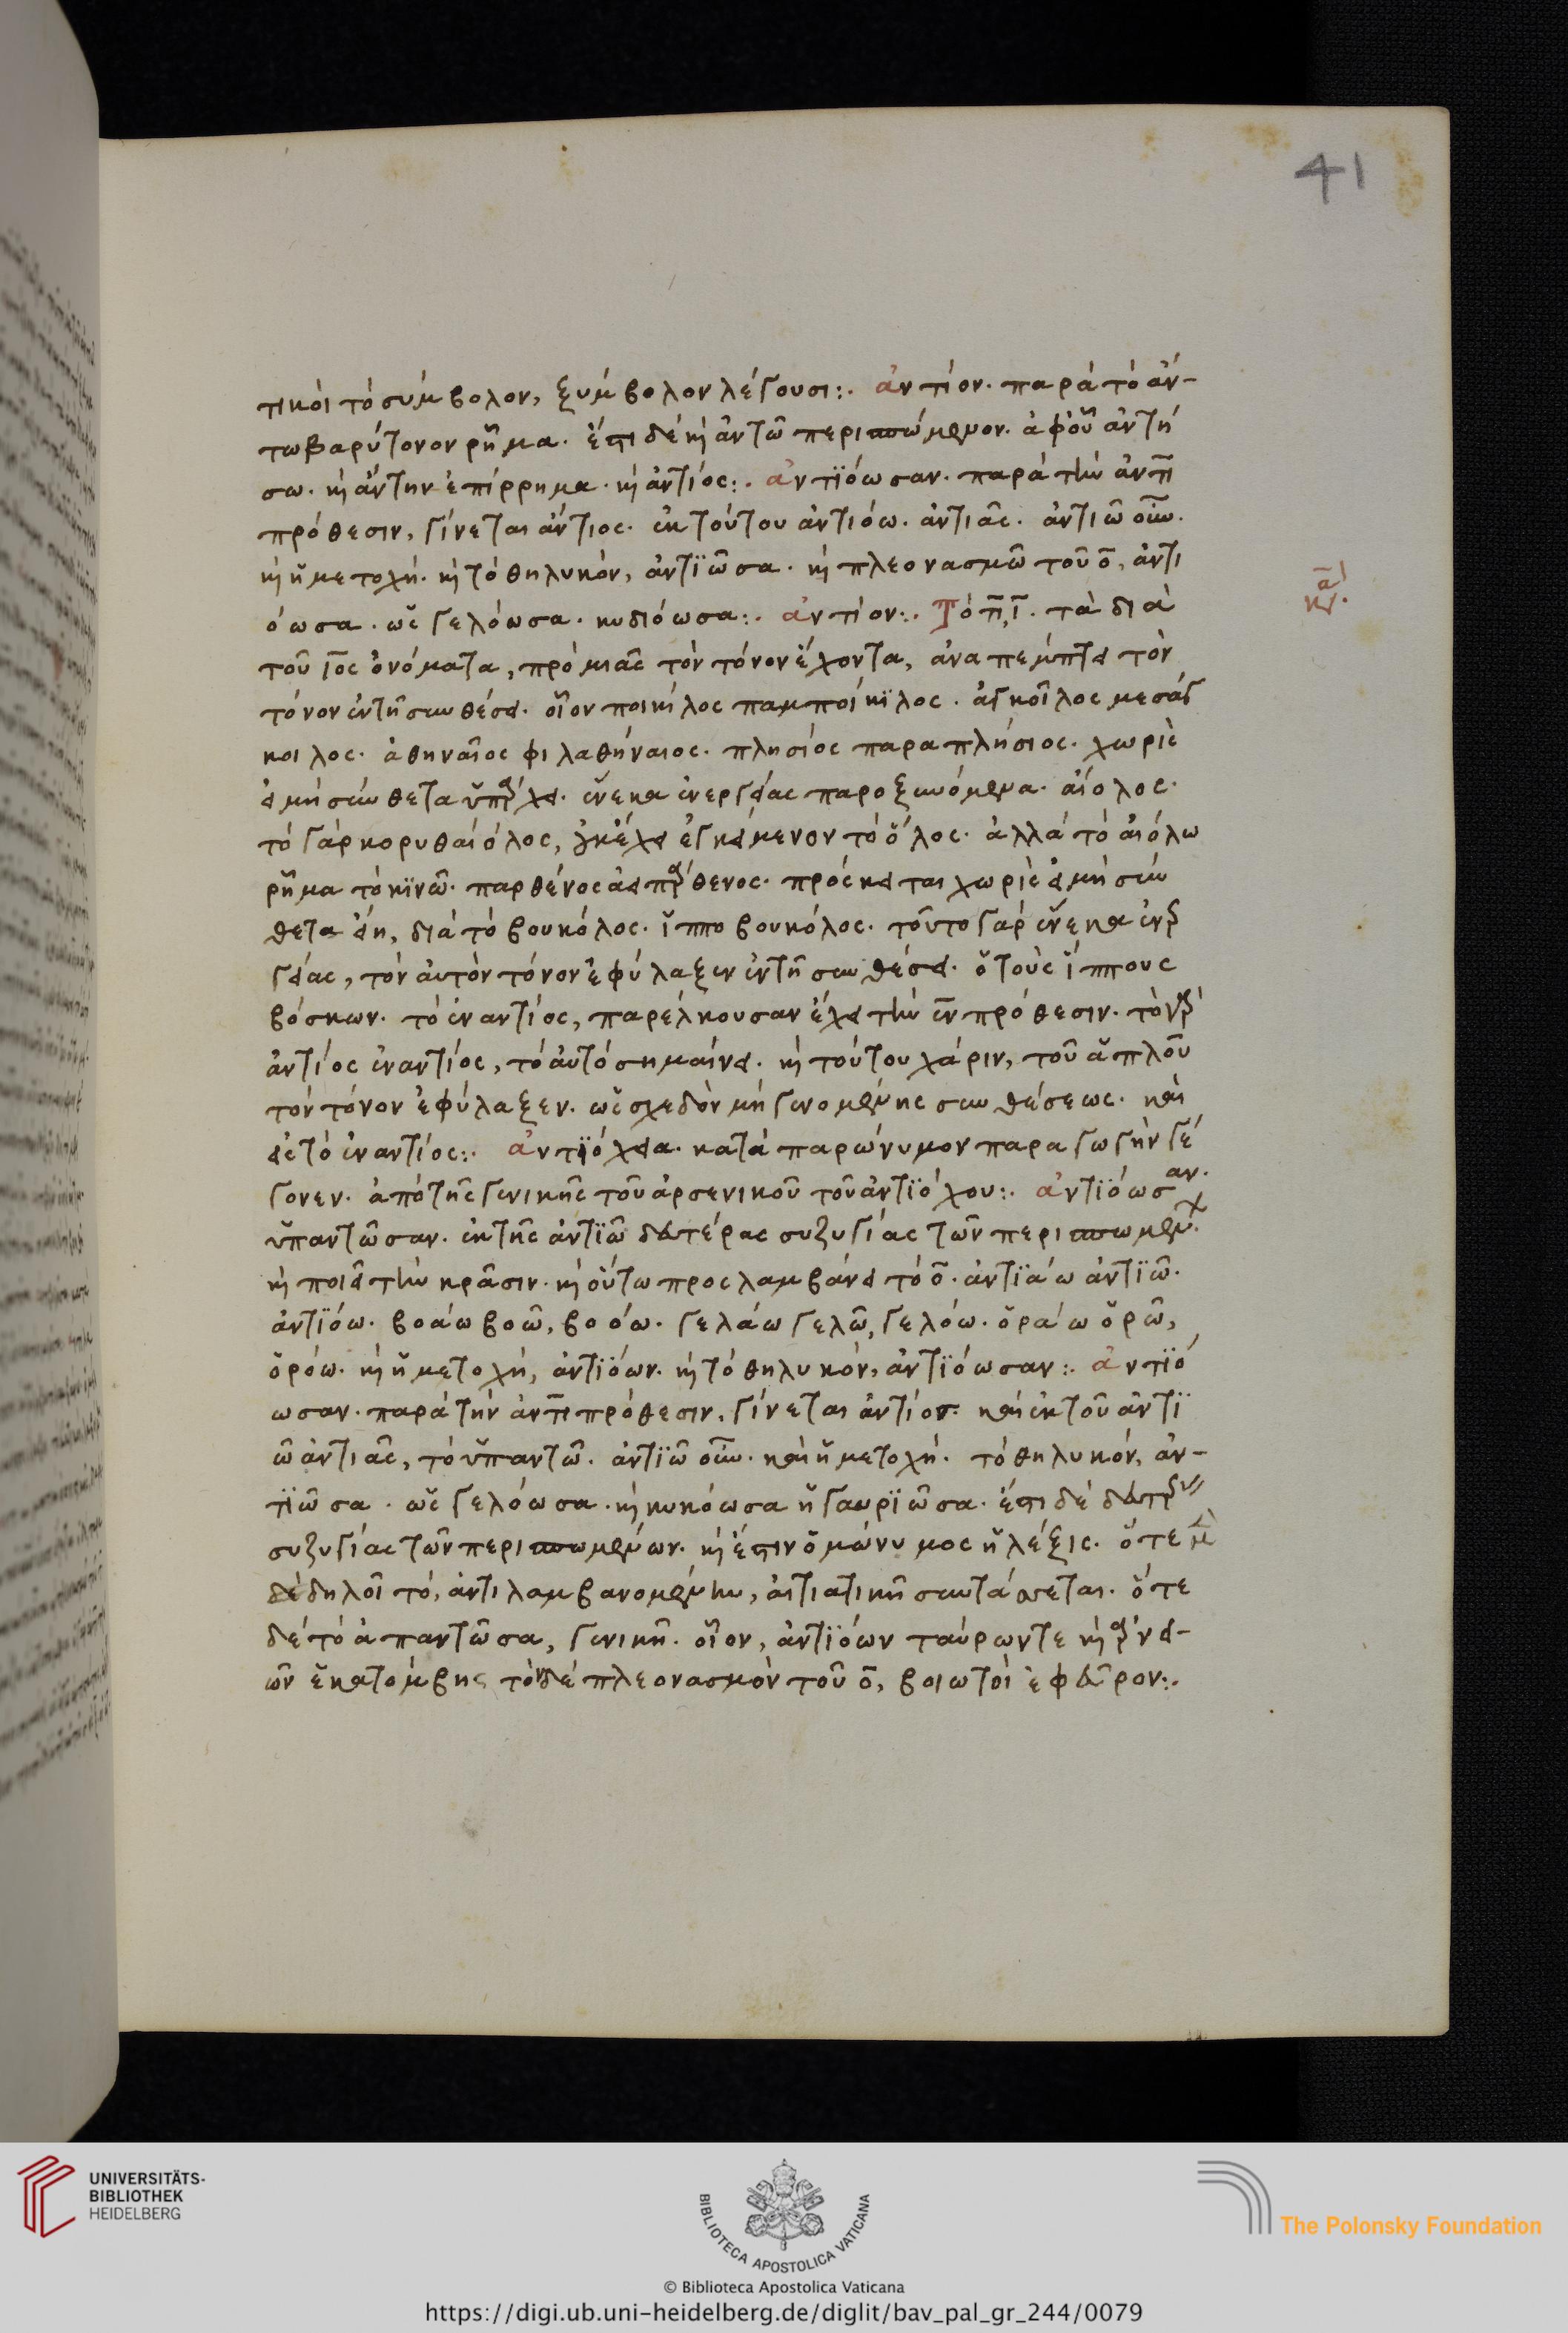 41
τικοὶ τὸ σύμβολον, ξύμβολον λέγουσι:. ἀντίον. παρὰ τὸ ἄν-
τω βαρύτονον ρῆμα. ἔστι δὲ κὶ ἀντῶ περισπώμενον. ἀφ' οὗ ἀντή
σω. κὶ ἄντην ἐπίρρημα. κὶ ἀντίος:. ἀντϊόωσαν. παρὰ τὴν ἀντὶ
πρόθεσιν, γίνεται ἄντιος. ἐκ τούτου ἀντιόω. ἀντιᾶς. ἀντιῶ οἶον.
κὶ ἡ μετοχή. κὶ τὸ θηλυκὸν, ἀντϊῶσα. κὶ πλεονασμῶ τοῦ ο, ἀντι
όωσα. ὡς γελόωσα. κυδιόωσα:. ἀντίον:. Τὸ πι. τὰ διὰ
κα.
τοῦ ιος ὀνόματα, πρὸ μιᾶς τὸν τόνον ἔχοντα, ἀναπέμπει τὸν
τόνον ἐν τῆ συνθέσει. οἷον ποικίλος παμποίκϊλος. ἀγκοῖλος μεσάγ
κοιλος. ἀθηναῖος φιλαθήναιος. πλησίος παραπλήσιος. χωρὶς
εἰ μὴ σύνθετα ὑπάρχει. ἕνεκα ἐνεργείας παροξυνόμενα. αἰόλος.
τὸ γὰρ κορυθαιόλος, οὐκ ἔχει ἐγκείμενον τὸ ὅλος. ἀλλὰ τὸ αἰόλω
ρῆμα τὸ κϊνῶ. παρθένος ἀειπάρθενος. πρόσκειται χωρὶς εἰ μὴ σύν
θετα εἴη, διὰ τὸ βουκόλος. ἱπποβουκόλος. τοῦτο γὰρ ἕνεκα ἐνερ
γείας, τὸν αὐτὸν τόνον ἐφύλαξεν ἐν τῆ συνθέσει. ὁ τοὺς ἵππους
βόσκων. τὸ ἐναντίος, παρέλκουσαν ἔχει τὴν ἐν πρόθεσιν. τὸ γὰρ
ἀντίος ἐναντίος, τὸ αὐτὸ σημαίνει. κὶ τούτου χάριν, τοῦ ἁπλοῦ
τὸν τόνον ἐφύλαξεν. ὡς σχεδὸν μὴ γενομένης συνθέσεως. καὶ
εἰς τὸ ἐναντίος:. ἀντϊόχεια. κατὰ παρώνυμον παραγωγὴν γέ
γονεν. ἀπὸ τῆς γενικῆς τοῦ ἀρσενικοῦ τοῦ ἀντϊόχου:. ἀντϊόωσαν.
ὑπαντῶσαν. ἐκ τῆς ἀντϊῶ δευτέρας συζυγίας τῶν περισπωμένων.
κὶ ποιεῖ τὴν κρᾶσιν. κὶ οὕτω προσλαμβάνει τὸ ο. ἀντϊάω ἀντϊῶ.
ἀντϊόω. βοάω βοῶ, βοόω. γελάω γελῶ, γελόω. ὁράω ὁρῶ,
ὁρόω. κὶ ἡ μετοχή, ἀντϊόων. κὶ τὸ θηλυκὸν, ἀντϊόωσαν:. ἀντϊό
ωσαν. παρὰ τὴν ἀντὶ πρόθεσιν, γίνεται ἀντίον. καὶ ἐκ τοῦ ἀντϊ
ῶ ἀντιᾶς, τὸ ὑπαντῶ. ἀντϊῶ οἶον. καὶ ἡ μετοχή. τὸ θηλυκὸν, ἀν-
τϊῶσα. ὡς γελόωσα. κὶ κυκόωσα ἢ γαυρϊῶσα. ἔστι δὲ δευτέρας
συζυγίας τῶν περισπωμένων. κὶ ἔστιν ὁμώνυμος ἡ λέξις. ὅτε μὲν
δὲ δηλοῖ τὸ, ἀντιλαμβανομένην, αἰτιατικῆ συντάσσεται. ὅτε
δὲ τὸ ἀπαντῶσα, γενικῆ. οἷον, ἀντϊόων ταύρωντε κὶ ἀρνει-
ῶν ἑκατόμβης τὸνδὲ πλεονασμὸν τοῦ ο, βοιωτοὶ ἐφεῦρον:.
UNIVERSITÄTS-
BIBLIOTHEK
HEIDELBERG
BIBLIOTECA APOSTOLICA VATICANA
The Polonsky Foundation
© Biblioteca Apostolica Vaticana
https://digi.ub.uni-heidelberg.de/diglit/bav_pal_gr_244/0079